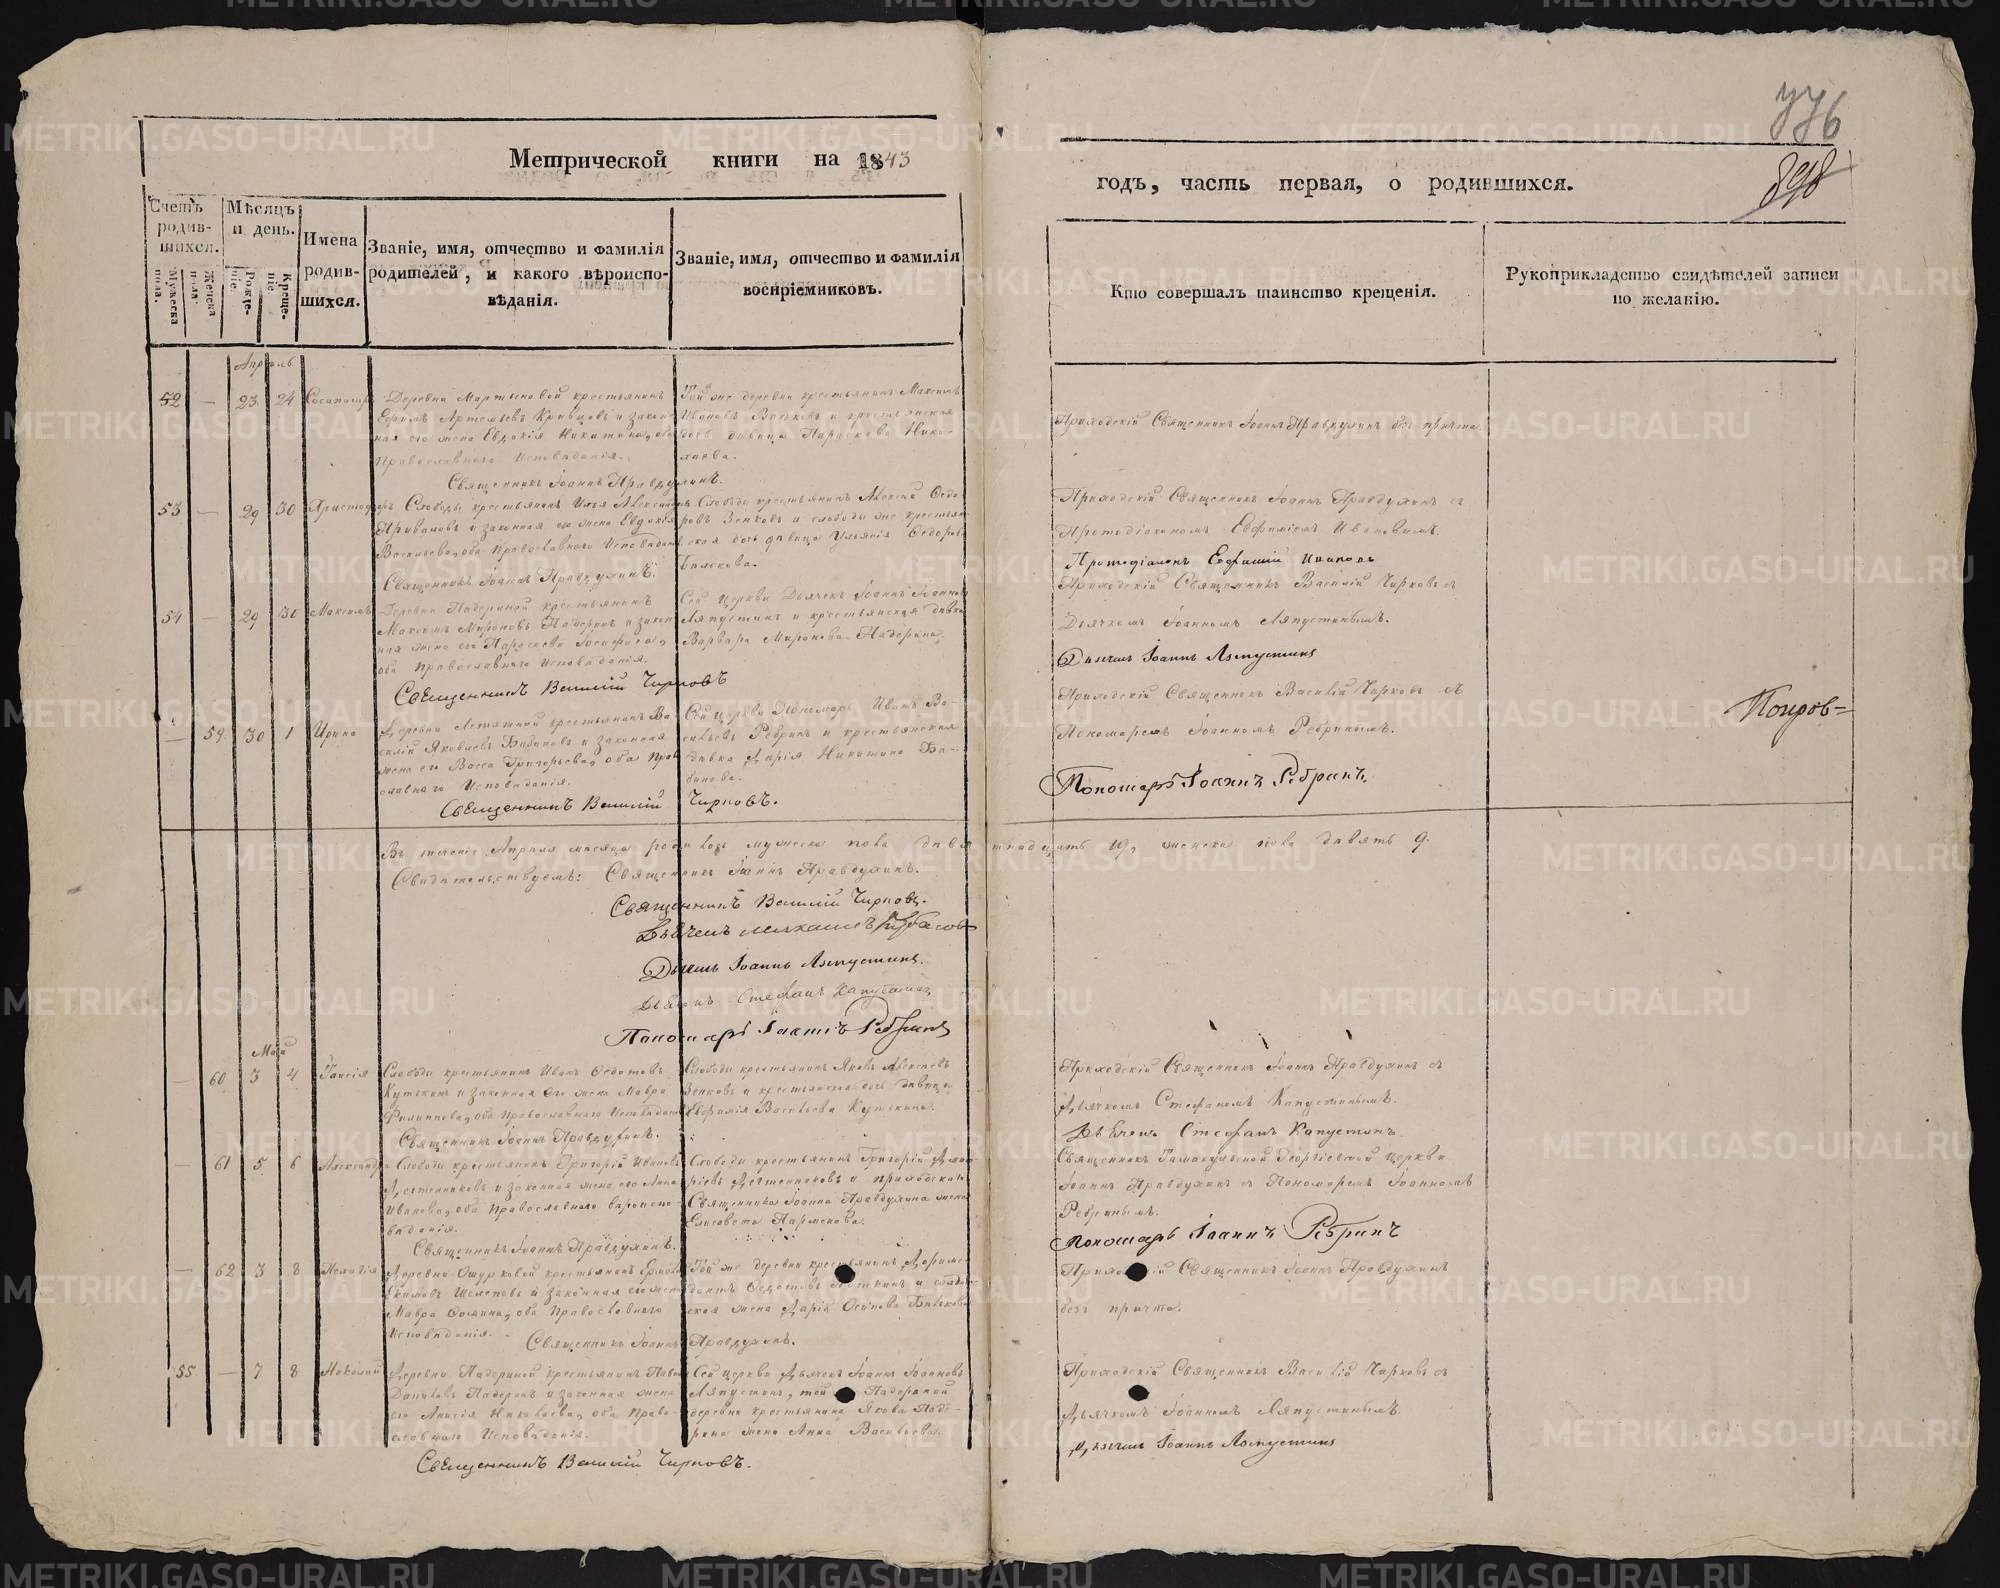 776
898
Метрической книги на 1843
годъ, часть первая, о родившихся.
Счетъ родив-шихся.
Мѣсяцъ и день.
Имена родив-шихся.
Званіе, имя, отчество и фамилія родителей, и какого вѣроиспо-вѣданія.
Званіе, имя, отчество и фамилія воспріемниковъ.
Мужеска пола.
Женска пола.
Рожде-ніе.
Креще-ніе.
Кто совершалъ таинство крещенія.
Рукоприкладство свидѣтелей записи по желанію.
Апрель
52 — 23 24
Деревни Мартыновой крестьянинъ
Ефимъ Артемьевъ Кравцовъ и закон-
ная его жена Евдокія Никитина, оба
Православнаго Исповѣданія.
Той же деревни крестьянинъ Максимъ
Ивановъ и крестьянская
дочь дѣвица Параскева Нико-
лаева.
Священникъ Іоаннъ Правдухинъ.
Приходскій Священникъ Іоаннъ Правдухинъ безъ причта.
53 — 29 30
Слободы крестьянинъ Илья Александровъ
Приваловъ и законная его жена Евдокія
Васильева, оба Православнаго Исповѣданія
Слободы крестьянинъ Алексей Федо-
ровъ Зенковъ и слободы же крестьян-
ская дочь дѣвица Ульянія Федорова
Священникъ Іоаннъ Правдухинъ.
Приходскій Священникъ Іоаннъ Правдухинъ съ
Протодіакономъ Евфиміемъ Ивановымъ.
Протодіаконъ Евфимій Ивановъ
54 — 29 30 Максимъ
Деревни Падериной крестьянинъ
Максимъ Мироновъ Падеринъ и закон-
ная жена его Параскева
оба Православнаго Исповѣданія.
Сей Церкви Дьячекъ Іоаннъ Іоанновъ
Ляпустинъ и крестьянская дѣвка
Варвара Миронова Падерина.
Священникъ Василій Чирковъ
Приходскій Священникъ Василій Чирковъ съ
Дьячкомъ Іоанномъ Ляпустинымъ.
Дьячекъ Іоаннъ Ляпустинъ
— 59 30 1 Ирина
Деревни крестьянинъ Ва-
силій Яковлевъ Бабиновъ и законная
жена его Васса Григорьева, оба Прав-
ославнаго Исповѣданія.
Сей церкви Пономарь Иванъ Ва-
сильевъ Ребринъ и крестьянская
дѣвка Дарія Никитина Ба-
бинова.
Священникъ Василій Чирковъ.
Приходскій Священникъ Василій Чирковъ съ
Пономаремъ Іоанномъ Ребринымъ.
Пономарь Іоаннъ Ребринъ.
Въ теченіе Апреля месяца родилось мужеска пола девятнадцать 19, женска пола девять 9.
Свидѣтельствуемъ: Священникъ Іоаннъ Правдухинъ.
Священникъ Василій Чирковъ.
Дьячекъ Іоаннъ Ляпустинъ.
Дьячекъ Стефанъ Капустинъ
Пономарь Іоаннъ Ребринъ
Май
— 60 3 4 Таисія
Слободы крестьянинъ Иванъ Федотовъ
Кутькинъ и законная его жена Мавра
Филиппова, оба Православнаго Исповѣданія
Слободы крестьянинъ Яковъ Алексеевъ
Зенковъ и крестьянская дочь дѣвица
Евфимія Васильева Кутькина.
Священникъ Іоаннъ Правдухинъ.
Приходскій Священникъ Іоаннъ Правдухинъ съ
Дьячкомъ Стефаномъ Капустинымъ.
Дьячекъ Стефанъ Капустинъ
— 61 5 6 Александра
Слободы крестьянинъ Григорій Ивановъ
и законная жена его Анна
Иванова, оба Православнаго вѣроиспо-
вѣданія.
Слободы крестьянинъ Григорій
и приходскаго
Священника Іоанна Правдухина жена
Елисавета Парменова.
Священникъ Іоаннъ Правдухинъ.
Священникъ Тамакульской Георгіевской церкви
Іоаннъ Правдухинъ съ Пономаремъ Іоанномъ
Ребринымъ.
Пономарь Іоаннъ Ребринъ
— 62 3 8 Пелагія
Деревни Ошурковой крестьянинъ
и законная его жена
Мавра Фомина, оба Православнаго
Исповѣданія.
Той же деревни крестьянинъ
жена Дарія Осипова
Священникъ Іоаннъ Правдухинъ.
Приходскій Священникъ Іоаннъ Правдухинъ
безъ причта.
55 — 7 8 Николай
Деревни Падериной крестьянинъ Павелъ
Даниловъ Падеринъ и законная жена
его Анисія Николаева, оба Право-
славнаго Исповѣданія.
Сей церкви Дьячекъ Іоаннъ Іоанновъ
Ляпустинъ, той Падериной
деревни крестьянина Якова Паде-
рина жена Анна Васильева.
Священникъ Василій Чирковъ.
Приходскій Священникъ Василій Чирковъ съ
Дьячкомъ Іоанномъ Ляпустинымъ
Дьячекъ Іоаннъ Ляпустинъ
METRIKI.GASO-URAL.RU